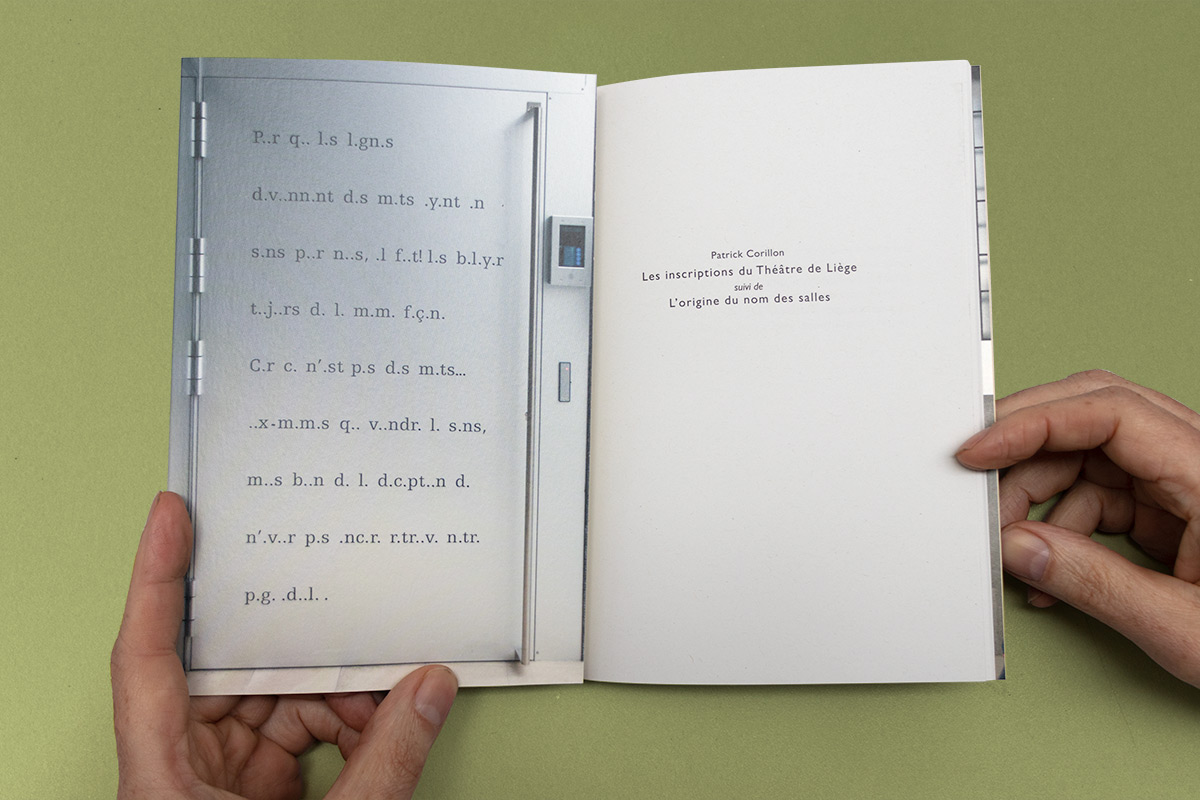 P..r q.. l.s l.gn.s
d.v..nn.nt d.s m.ts .y.nt .n .
s.ns p..r n..s, .l f..t! l.s b.l.y.r
t..j..rs d. l. m.m. f.ç.n.
C.r c. n'.st p.s d.s m.ts...
..x-m.m.s q.. v..ndr. l. s.ns,
m..s b..n d. l. d.c.pt..n d.
n'.v..r p.s .nc.r. r.tr..v. n.tr.
p.g. .d..l. .
Patrick Corillon
Les inscriptions du Théâtre de Liège
suivi de
L'origine du nom des salles